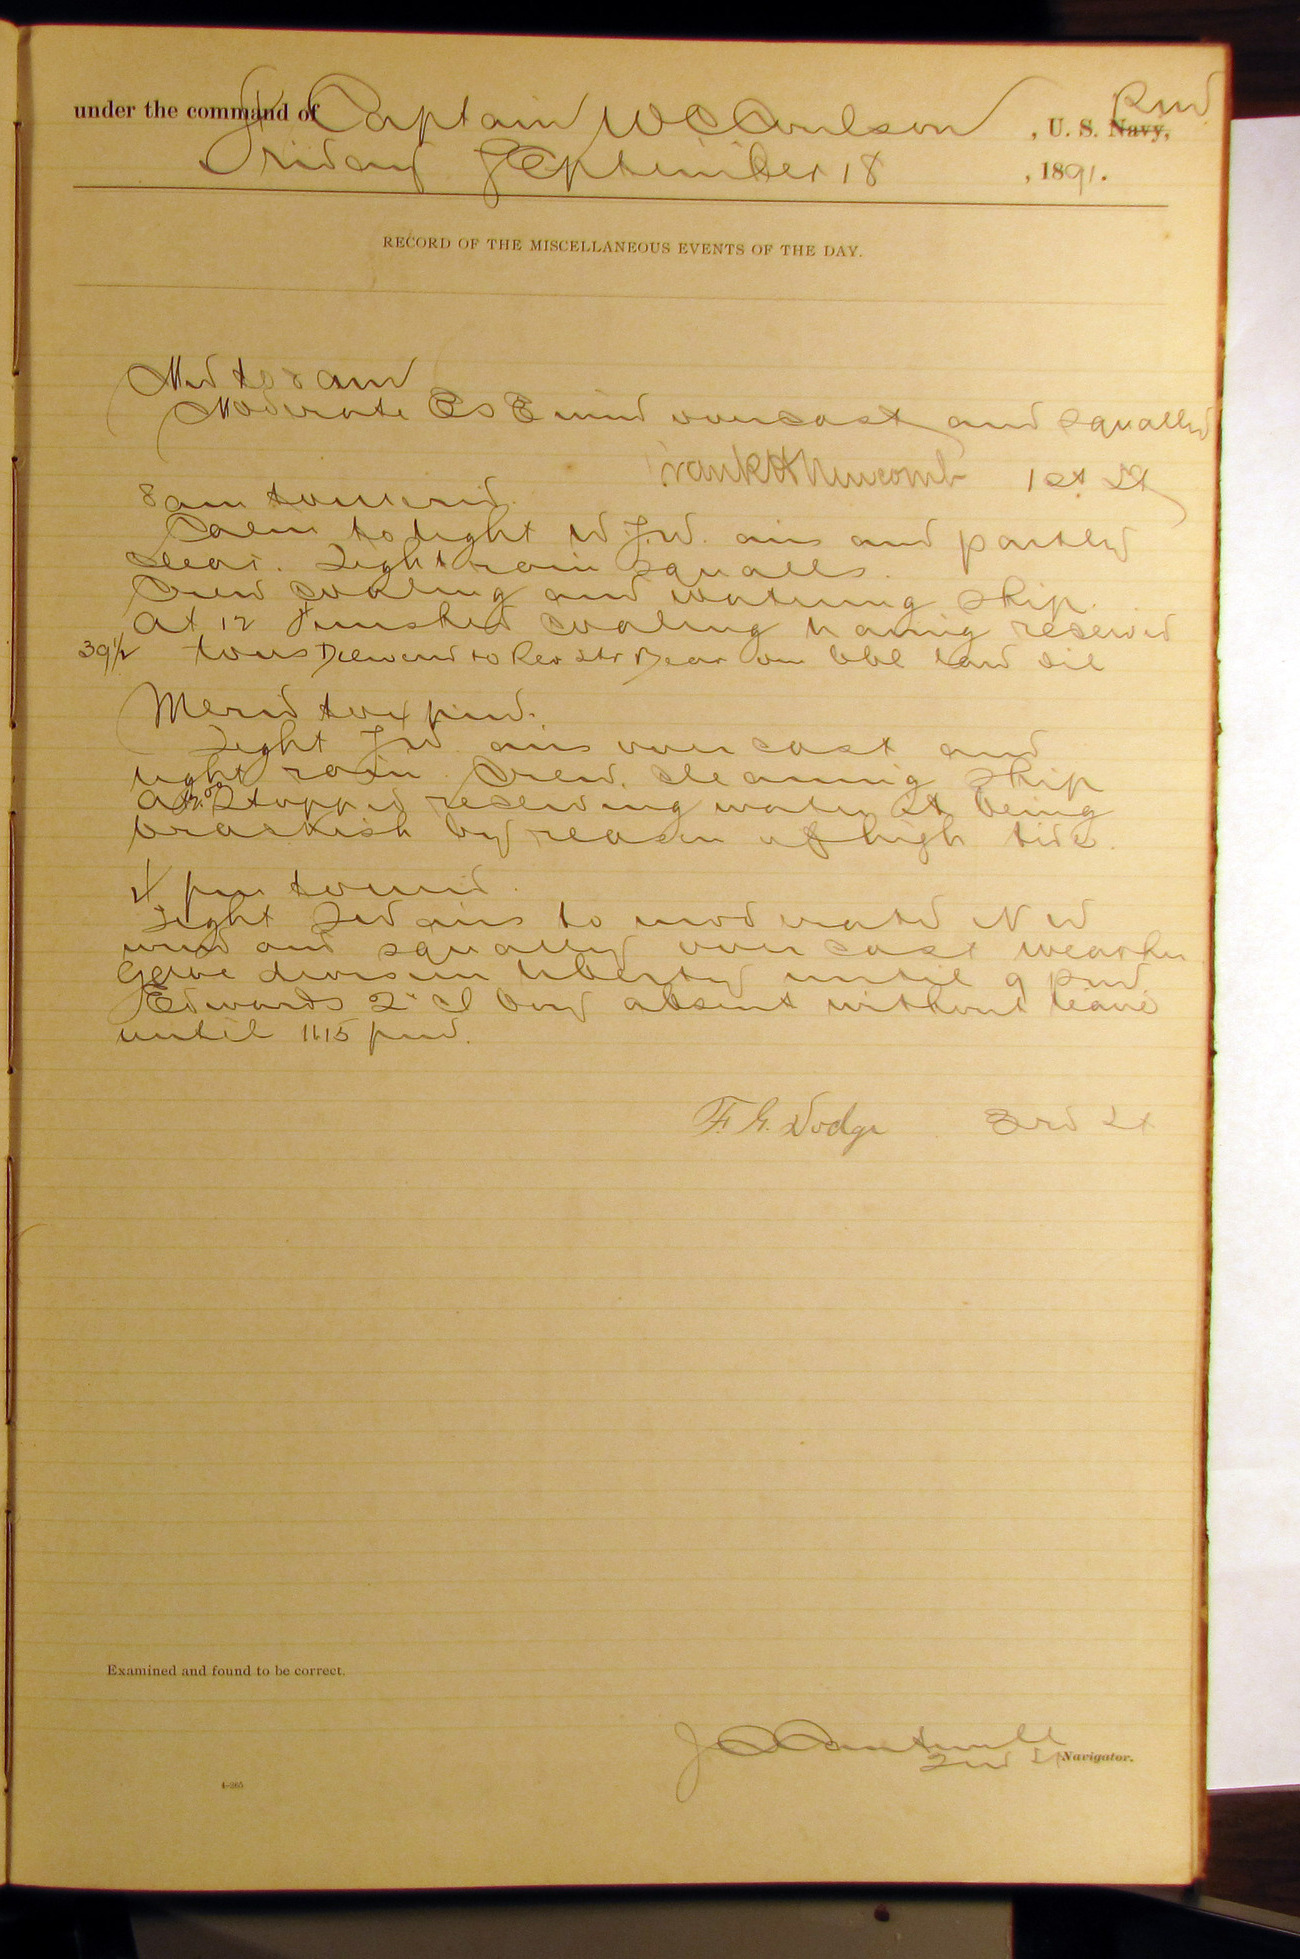 under the command of Captain W C Coulson , U. S. Navy, Rm
Friday September 18 , 1891.
RECORD OF THE MISCELLANEOUS EVENTS OF THE DAY.
Mid to 8 am
Moderate E S E wind overcast and squally
Frank H Newcomb 1st Lt
8 am to merid.
Calm to light W.S.W. airs and partly
clear. Light rain squalls.
Crew coaling and watering ship.
At 12 finished coaling having received
39 1/2 tons Delivered to Rev Str Bear one bbl lard oil
Merid to 4 pm.
Light SW airs overcast and
light rain. Crew cleaning ship
At stopped receiving water it being
brackish by reason of high tide.
4 pm to mid.
Light SW airs to moderate NW
wind and squally overcast weather
Gave division liberty until 9 pm
Edwards 2" cl boy absent without leave
until 11.15 pm.
F. G. Dodge 3rd Lt
Examined and found to be correct.
J C Cantwell
2nd Lt Navigator.
4—265